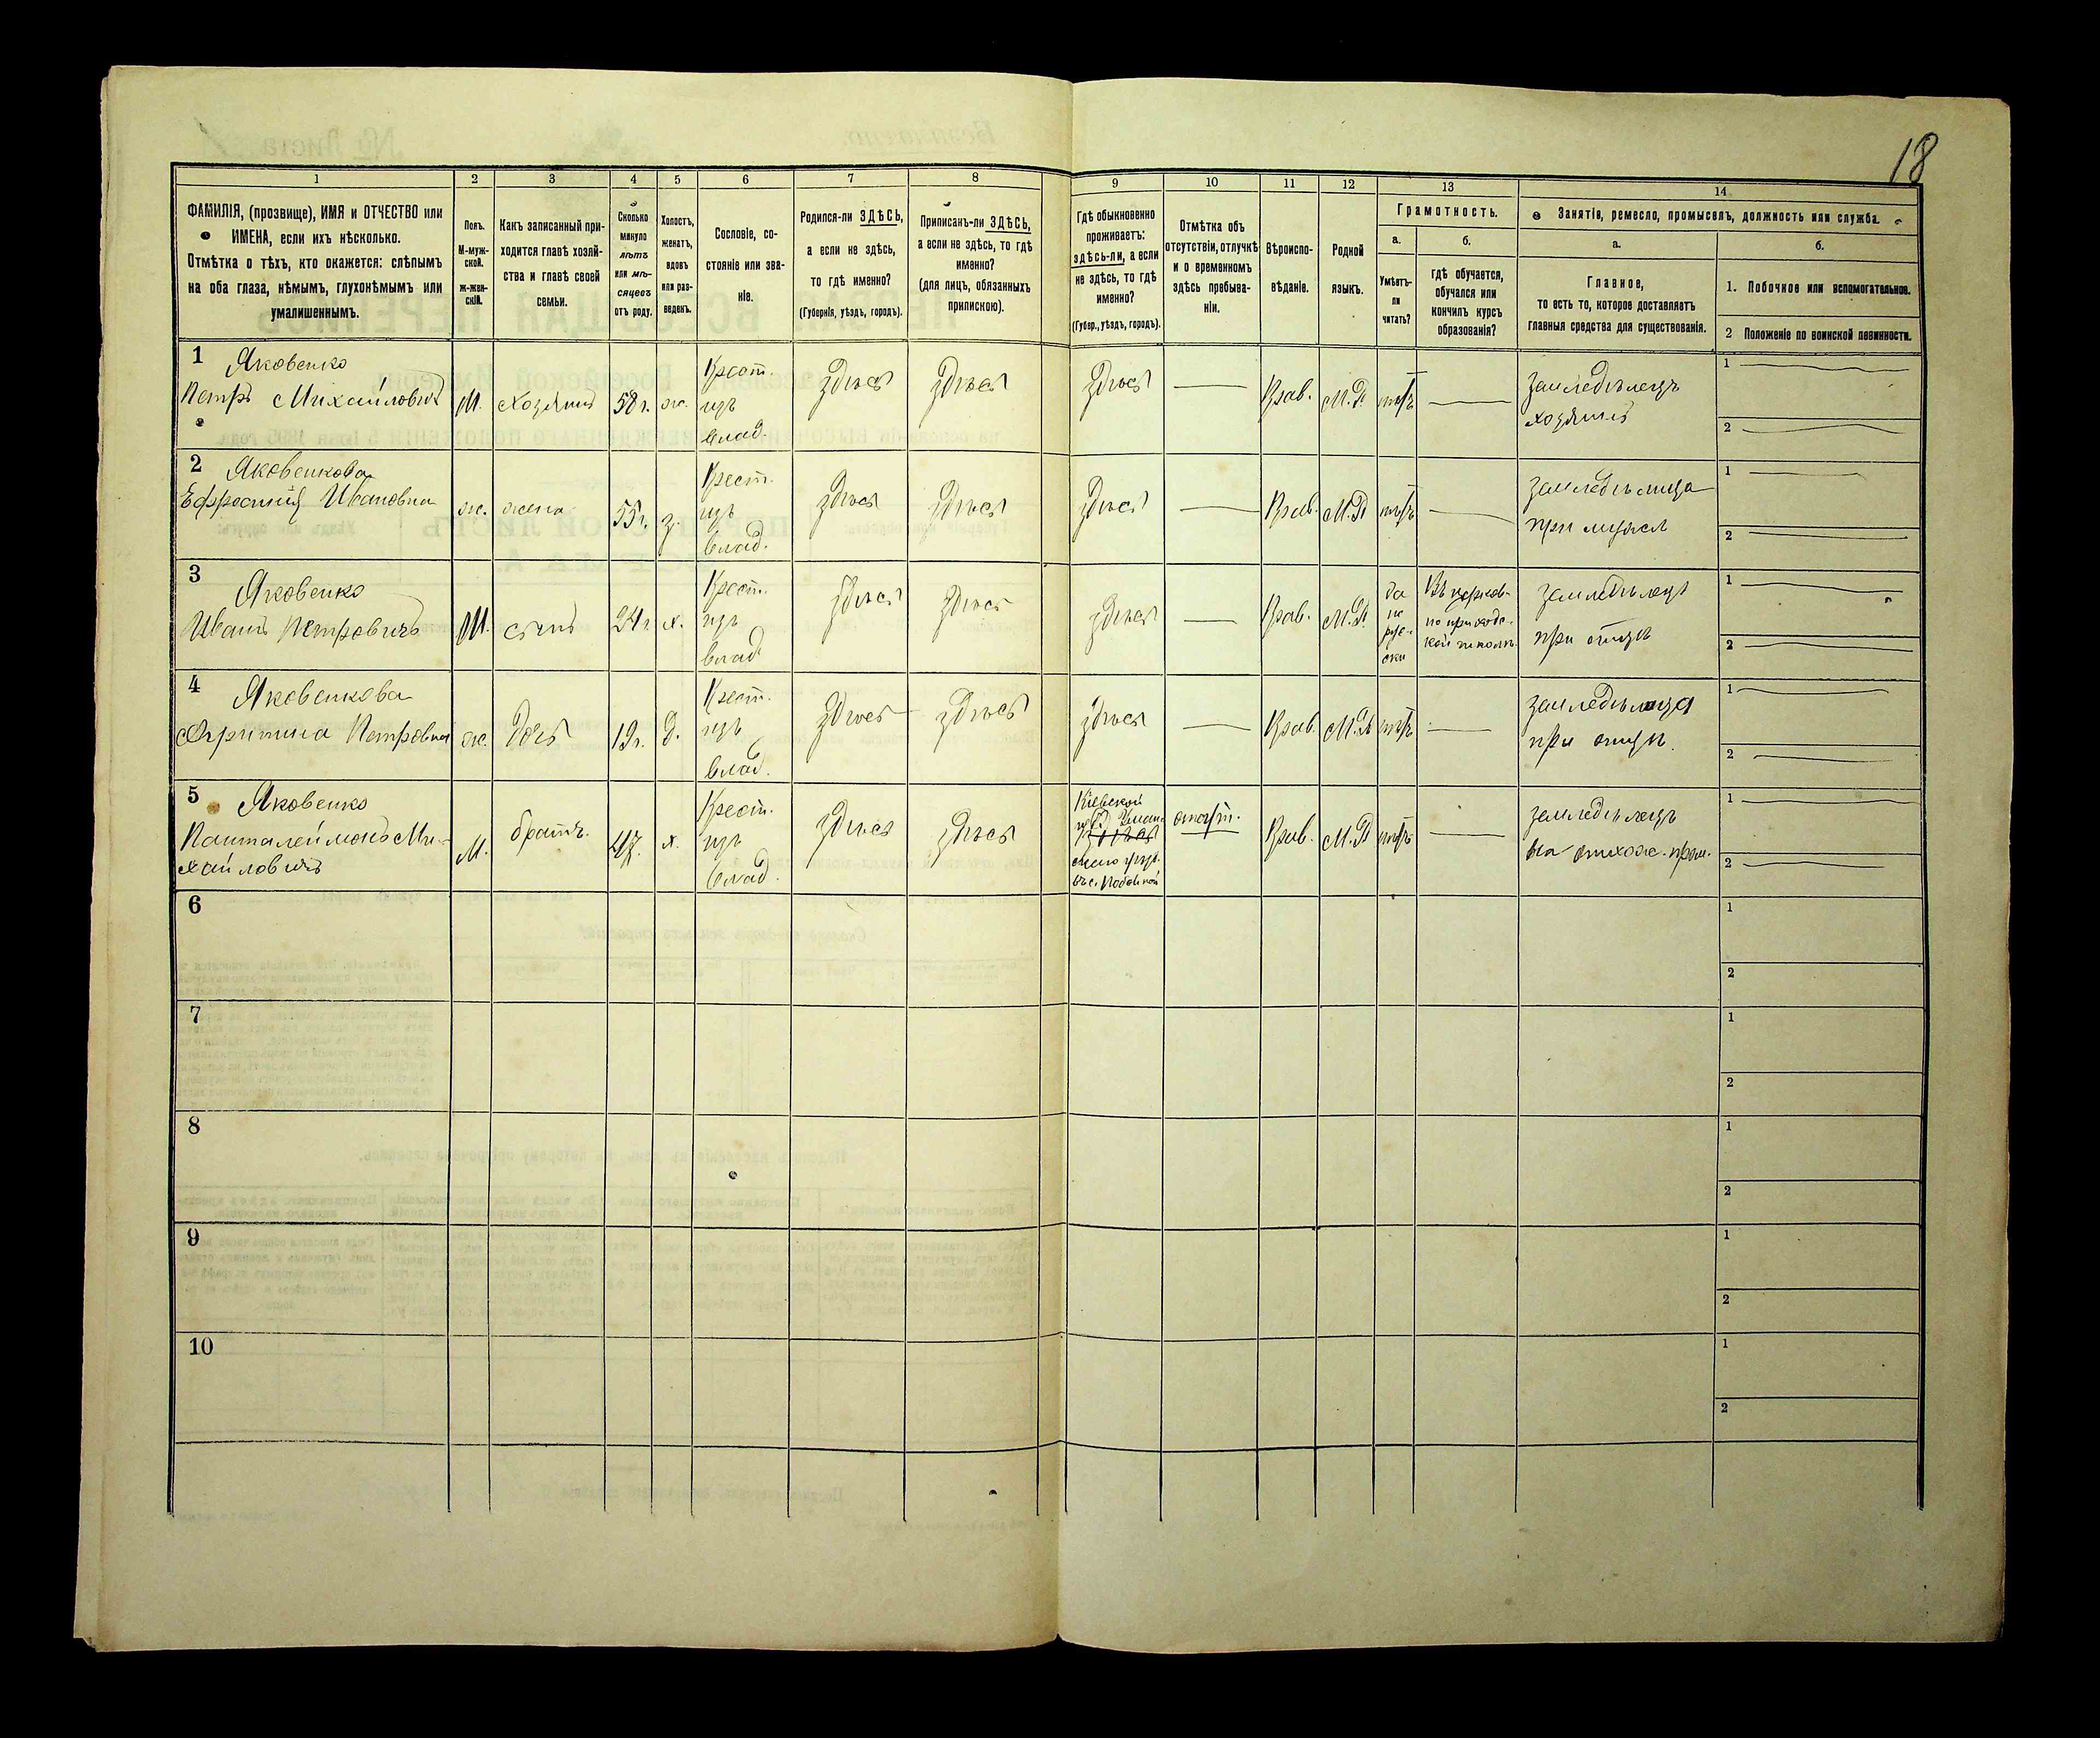 18
1
2
3
4
5
6
7
8
9
10
11
12
13
14
ФАМИЛІЯ, (прозвище), ИМЯ и ОТЧЕСТВО или
ИМЕНА, если ихъ нѣсколько.
Отмѣтка о тѣхъ, кто окажется: слѣпымъ
на оба глаза, нѣмымъ, глухонѣмымъ или
умалишеннымъ.
Полъ.
М-муж-
ской.
ж-жен-
скій.
Какъ записанный при-
ходится главѣ хозяй-
ства и главѣ своей
семьи.
Сколько
минуло
лѣтъ
или мѣ-
сяцевъ
отъ роду.
Холостъ,
женатъ,
вдовъ
или раз-
веденъ.
Сословіе, со-
стояніе или зва-
ніе.
Родился-ли ЗДѢСЬ,
а если не здѣсь,
то гдѣ именно?
(Губернія, уѣздъ, городъ).
Приписанъ-ли ЗДѢСЬ,
а если не здѣсь, то гдѣ
именно?
(для лицъ, обязанныхъ
припискою).
Гдѣ обыкновенно
проживаетъ:
здѣсь-ли, а если
не здѣсь, то гдѣ
именно?
(Губер., уѣздъ, городъ).
Отмѣтка объ
отсутствіи, отлучкѣ
и о временномъ
здѣсь пребыва-
ніи.
Вѣроиспо-
вѣданіе.
Родной
языкъ.
Грамотность.
а.
Умѣетъ-
ли
читать?
б.
гдѣ обучается,
обучался или
кончилъ курсъ
образованія?
Занятія, ремесло, промыселъ, должность или служба.
а.
Главное,
то есть то, которое доставляетъ
главныя средства для существованія.
б.
1. Побочное или вспомогательное.
2 Положеніе по воинской повинности.
1 Яковенко
Петръ Михайловичъ
М.
хозяинъ
58 г.
ж.
Крест.
изъ
влад.
здѣсь
здѣсь
здѣсь
Прав.
М.Р.
нѣтъ
Земледѣлецъ
хозяинъ
1
2
2 Яковенкова
Ефросинія Ивановна
ж.
жена
55 г.
з.
Крест.
изъ
влад.
здѣсь
здѣсь
здѣсь
Прав.
М.Р.
нѣтъ
земледѣлица
при мужѣ
1
2
3 Яковенко
Иванъ Петровичъ
М.
сынъ
24 г.
х.
Крест.
изъ
влад.
здѣсь
здѣсь
здѣсь
Прав.
М.Р.
да
по
рус-
ски
Въ церков-
но приходс-
кой школѣ
земледѣлецъ
при отцѣ
1
2
4 Яковенкова
Петровна
ж.
дочь
19 г.
д.
Крест.
изъ
влад.
здѣсь
здѣсь
здѣсь
Прав.
М.Р.
нѣтъ
земледѣлица
при отцѣ.
1
2
5 Яковенко
Панталеймонъ Ми-
хайловичъ
М.
братъ.
х.
Крест.
изъ
влад.
здѣсь
здѣсь
Кіевской
губ. Уман-
здѣсь
скаго уѣзд.
въ с.
отсут.
Прав.
М.Р.
нѣтъ
земледѣлецъ
на отхож. пром.
1
2
6
1
2
7
1
2
8
1
2
9
1
2
10
1
2